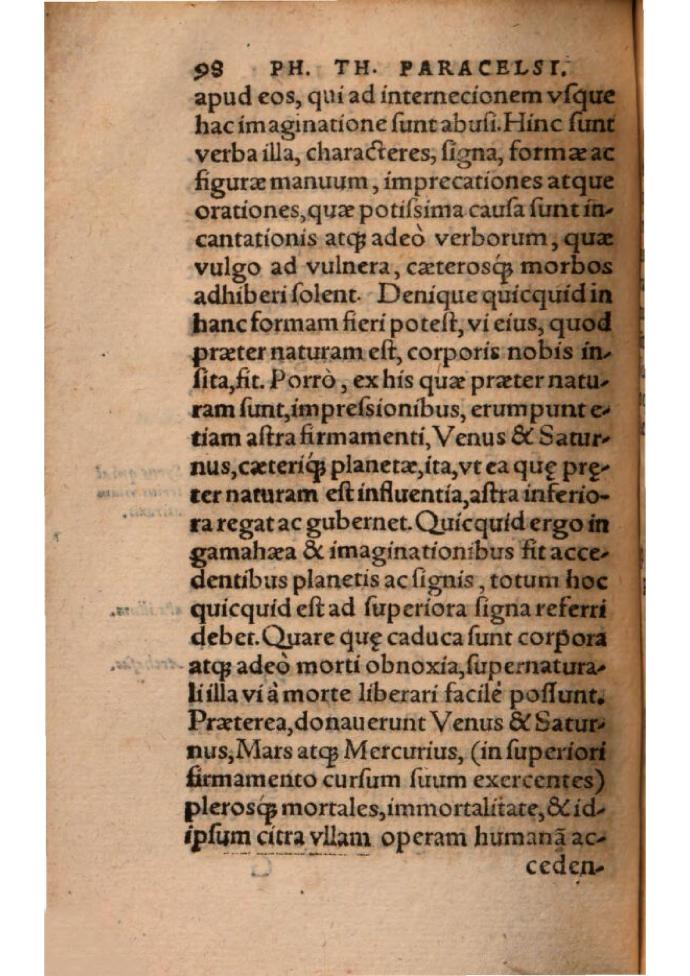 98 PH. TH. PARACELSI.
apud eos, qui ad internecionem vſque
hac imaginatione ſunt abuſi. Hinc ſunt
verba illa, characteres, ſigna, formæ ac
figuræ manuum, imprecationes atque
orationes, quæ potiſsima cauſa ſunt in-
cantationis atq́; adeò verborum, quæ
vulgo ad vulnera, cæterosq́; morbos
adhiberi ſolent. Denique quicquid in
hanc formam fieri poteſt, vi eius, quod
præter naturam eſt, corporis nobis in-
ſita, fit. Porrò, ex his quæ præter natu-
ram ſunt, impreſsionibus, erumpunt e-
tiam aſtra firmamenti, Venus & Satur-
nus, cæteriq́; planetæ, ita, vt ea quę prę-
ter naturam eſt influentia, aſtra inferio-
ra regat ac gubernet. Quicquid ergo in
gamahæa & imaginationibus fit acce-
dentibus planetis ac ſignis, totum hoc
quicquid eſt ad ſuperiora ſigna referri
debet. Quare quę caduca ſunt corpora
atq́; adeò morti obnoxia, ſupernatura-
li illa vi à morte liberari facilè poſſunt.
Præterea, donauerunt Venus & Satur-
nus, Mars atq́; Mercurius, (in ſuperiori
firmamento curſum ſuum exercentes)
plerosq́; mortales, immortalitate, & id-
ipſum citra vllam operam humanã ac-
ceden-